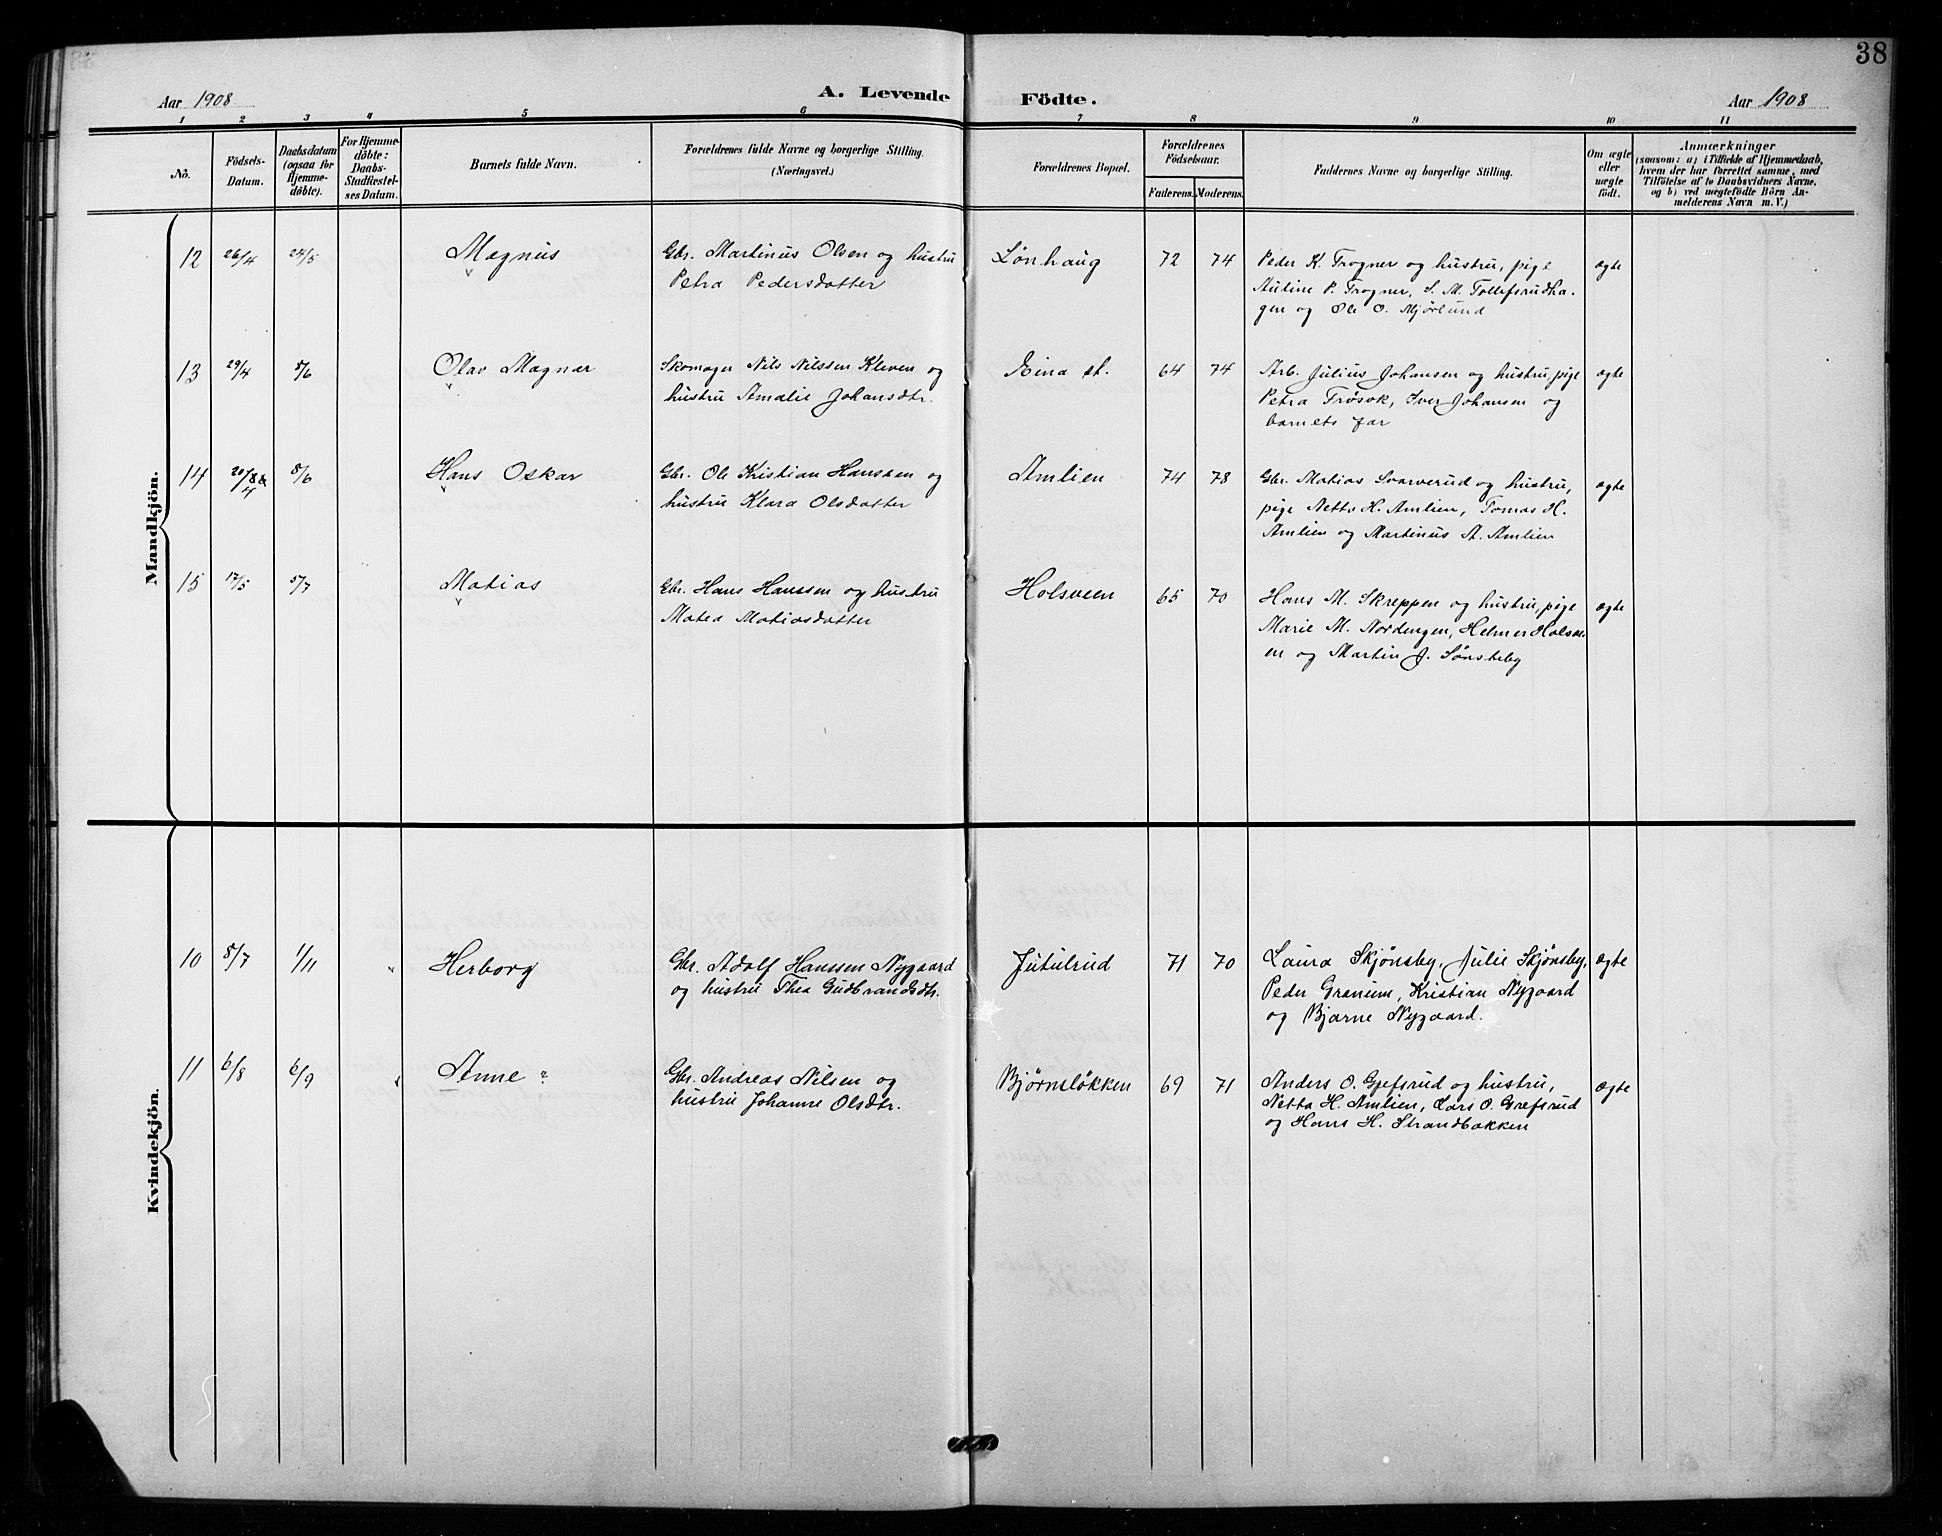 38
Aar 1908
A. Levende Födte.
Aar 1908
1 2 3 4 5 6 7 8 9 10 11
No.
Födsels-
Datum.
Daabsdatum
(ogsaa for
Hjemme-
döbte).
For Hjemme-
döbte:
Daabs-
Stadfæstel-
ses Datum.
Barnets fulde Navn.
Forældrenes fulde Navne og borgerlige Stilling.
(Næringsvei.)
Forældrenes Bopæl.
Forældrenes
Födselsaar.
Faderens. Moderens.
Faddernes Navne og borgerlige Stilling.
Om ægte
eller
uægte
födt.
Anmærkninger
(saasom: a) i Tilfælde af Hjemmedaab,
hvem der har forrettet samme, med
Tilföielse af to Daabsvidners Navne,
og b) ved uægtefödte Börn An-
melderens Navn m. V.)
Mandkjön.
12 26/4 24/5 Magnus
Gbr. Martinus Olsen og hustru
Petra Pedersdatter
Lønhaug 72 74
Peder K. Trogner og hustru, pige
Auline P. Trogner, S. M. Tollefsrudha-
gen og Ole O. Mjørlund
ægte
13 29/4 8/6 Olav Magnar
Skomager Nils Nilssen Kleven og
hustru Amalie Johansdtr.
Eina st. 64 74
Arb. Julius Johansen og hustru, pige
Petra Trøsvk, Iver Johansen og
barnets far
ægte
14 8/6 Hans Oskar
Gbr. Ole Kristian Hanssen og
hustru Klara Olsdatter
Amlien 74 78
Gbr. Matias Svarverud og hustru,
pige Netta H. Amlien, Tomas H.
Amlien og Martinus A. Amlien
ægte
15 17/5 5/7 Matias
Gbr. Hans Hanssen og hustru
Matea Matiasdatter
Holsveen 65 70
Hans M. Skreppen og hustru, pige
Marie M. Nordengen, Helmer Holsve-
en og Martin J. Sønsteby
ægte
Kvindekjön.
10 8/7 1/11 Herborg
Gbr. Adolf Hanssen Nygaard
og hustru Thea Gudbrandsdtr.
Jutulrud 71 70
Laura Skjønsby, Julie Skjønsby,
Peder Granum, Kristian Nygaard
og Bjarne Nygaard.
ægte
11 6/8 6/9 Anne
Gbr. Andreas Nilsen og
hustru Johanne Olsdtr.
Bjørnsløkken 69 71
Anders O. Grefsrud og hustru,
Netta H. Amlien, Lars O. Grefsrud
og Hans H. Strandbakken
ægte